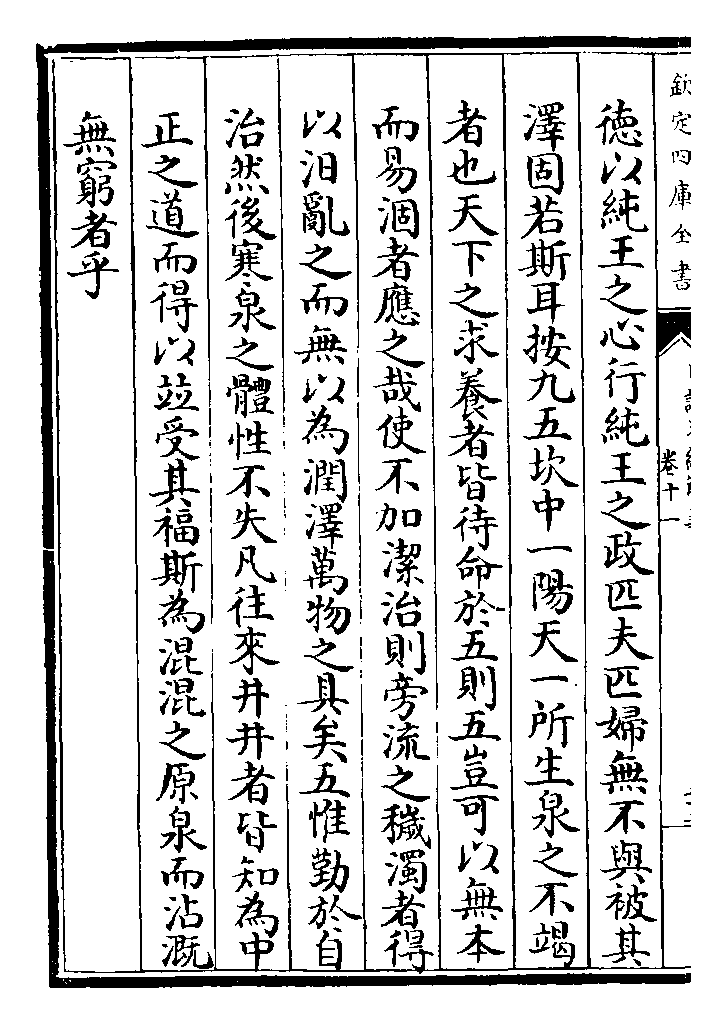 欽定四庫全書
卷十一
德以純王之心行純王之政匹夫匹婦無不與被其
澤固若斯耳按九五坎中一陽天一所生泉之不竭
者也天下之求養者皆待命於五則五豈可以無本
而易涸者應之哉使不加潔治則旁流之穢濁者得
以汨亂之而無以為潤澤萬物之具矣五惟勤於自
治然後寒泉之體性不失凡往來井井者皆知為中
正之道而得以並受其福斯為混混之原泉而沾溉
無窮者乎